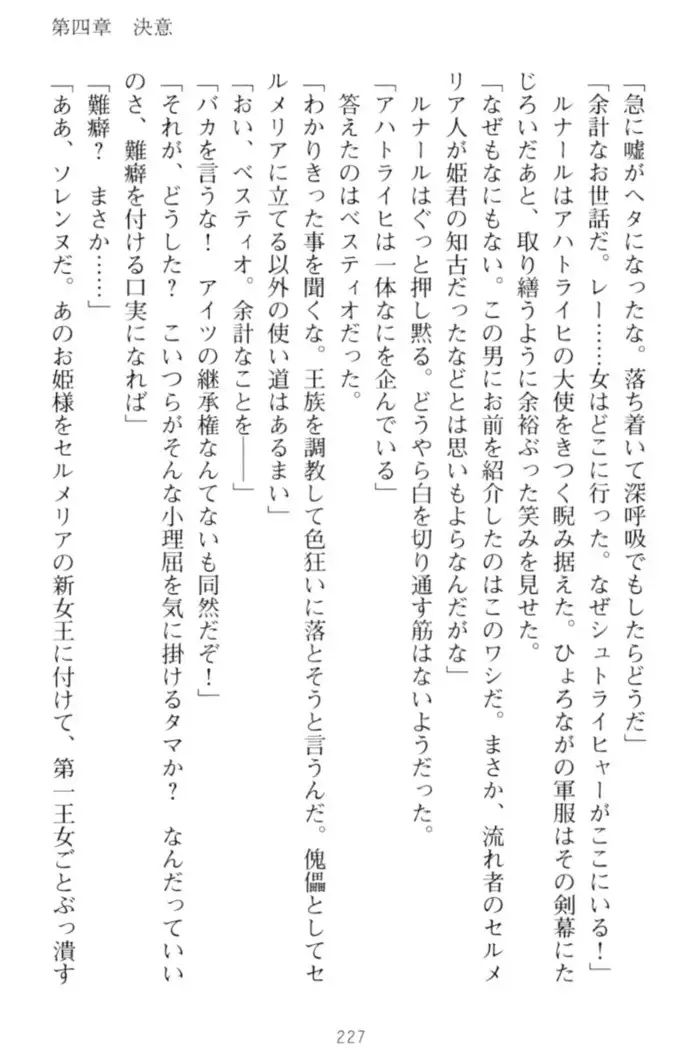 第四章　決意
「急に嘘がヘタになったな。落ち着いて深呼吸でもしたらどうだ」
「余計なお世話だ。レー……女はどこに行った。なぜシュトライヒャーがここにいる！」
　ルナールはアハトライヒの大使をきつく睨み据えた。ひょろながの軍服はその剣幕にた
じろいだあと、取り繕うように余裕ぶった笑みを見せた。
「なぜもなにもない。この男にお前を紹介したのはこのワシだ。まさか、流れ者のセルメ
リア人が姫君の知古だったなどとは思いもよらなんだがな」
　ルナールはぐっと押し黙る。どうやら白を切り通す筋はないようだった。
「アハトライヒは一体なにを企んでいる」
　答えたのはベスティオだった。
「わかりきった事を聞くな。王族を調教して色狂いに落とそうと言うんだ。傀儡としてセ
ルメリアに立てる以外の使い道はあるまい」
「おい、ベスティオ。余計なことを――」
「バカを言うな！　アイツの継承権なんてないも同然だぞ！」
「それが、どうした？　こいつらがそんな小理屈を気に掛けるタマか？　なんだっていい
のさ、難癖を付ける口実になれば」
「難癖？　まさか……」
「ああ、ソレンヌだ。あのお姫様をセルメリアの新女王に付けて、第一王女ごとぶっ潰す
227